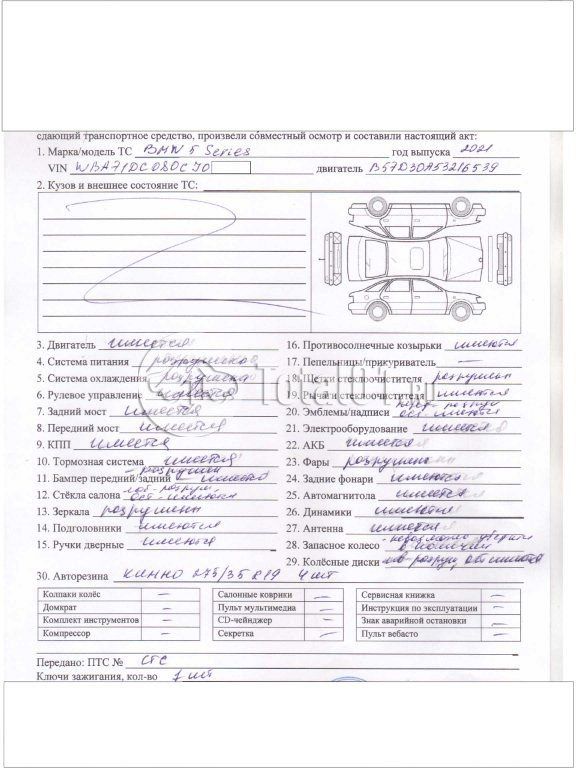 сдающий транспортное средство, произвели совместный осмотр и составили настоящий акт:
1. Марка/модель ТС BMW 5 Series год выпуска 2021
VIN WBA71DC080CJ0 двигатель B57D30A53216539
2. Кузов и внешнее состояние ТС:
3. Двигатель имеется
4. Система питания разрушена
5. Система охлаждения разрушена
6. Рулевое управление имеется
7. Задний мост имеется
8. Передний мост имеется
9. КПП имеется
10. Тормозная система имеется
11. Бампер передний/задний - разрушен имеется
12. Стёкла салона лоб - разруш ост - имеются
13. Зеркала разрушены
14. Подголовники имеются
15. Ручки дверные имеются
16. Противосолнечные козырьки имеются
17. Пепельницы/прикуриватель —
18. Щетки стеклоочистителя разрушены
19. Рычаги стеклоочистителя имеются
20. Эмблемы/надписи ост имеются
21. Электрооборудование имеется
22. АКБ имеется
23. Фары разрушены
24. Задние фонари имеются
25. Автомагнитола имеется
26. Динамики имеются
27. Антенна имеется
28. Запасное колесо - невозможно в наличии
29. Колёсные диски разруш, ост имеются
30. Авторезина 275/35 R19 4 шт
Колпаки колёс —
Домкрат —
Комплект инструментов —
Компрессор —
Салонные коврики —
Пульт мультимедиа —
CD-чейнджер —
Секретка —
Сервисная книжка —
Инструкция по эксплуатации —
Знак аварийной остановки —
Пульт вебасто —
Передано: ПТС № СТС
Ключи зажигания, кол-во 1 шт
Total01.ru